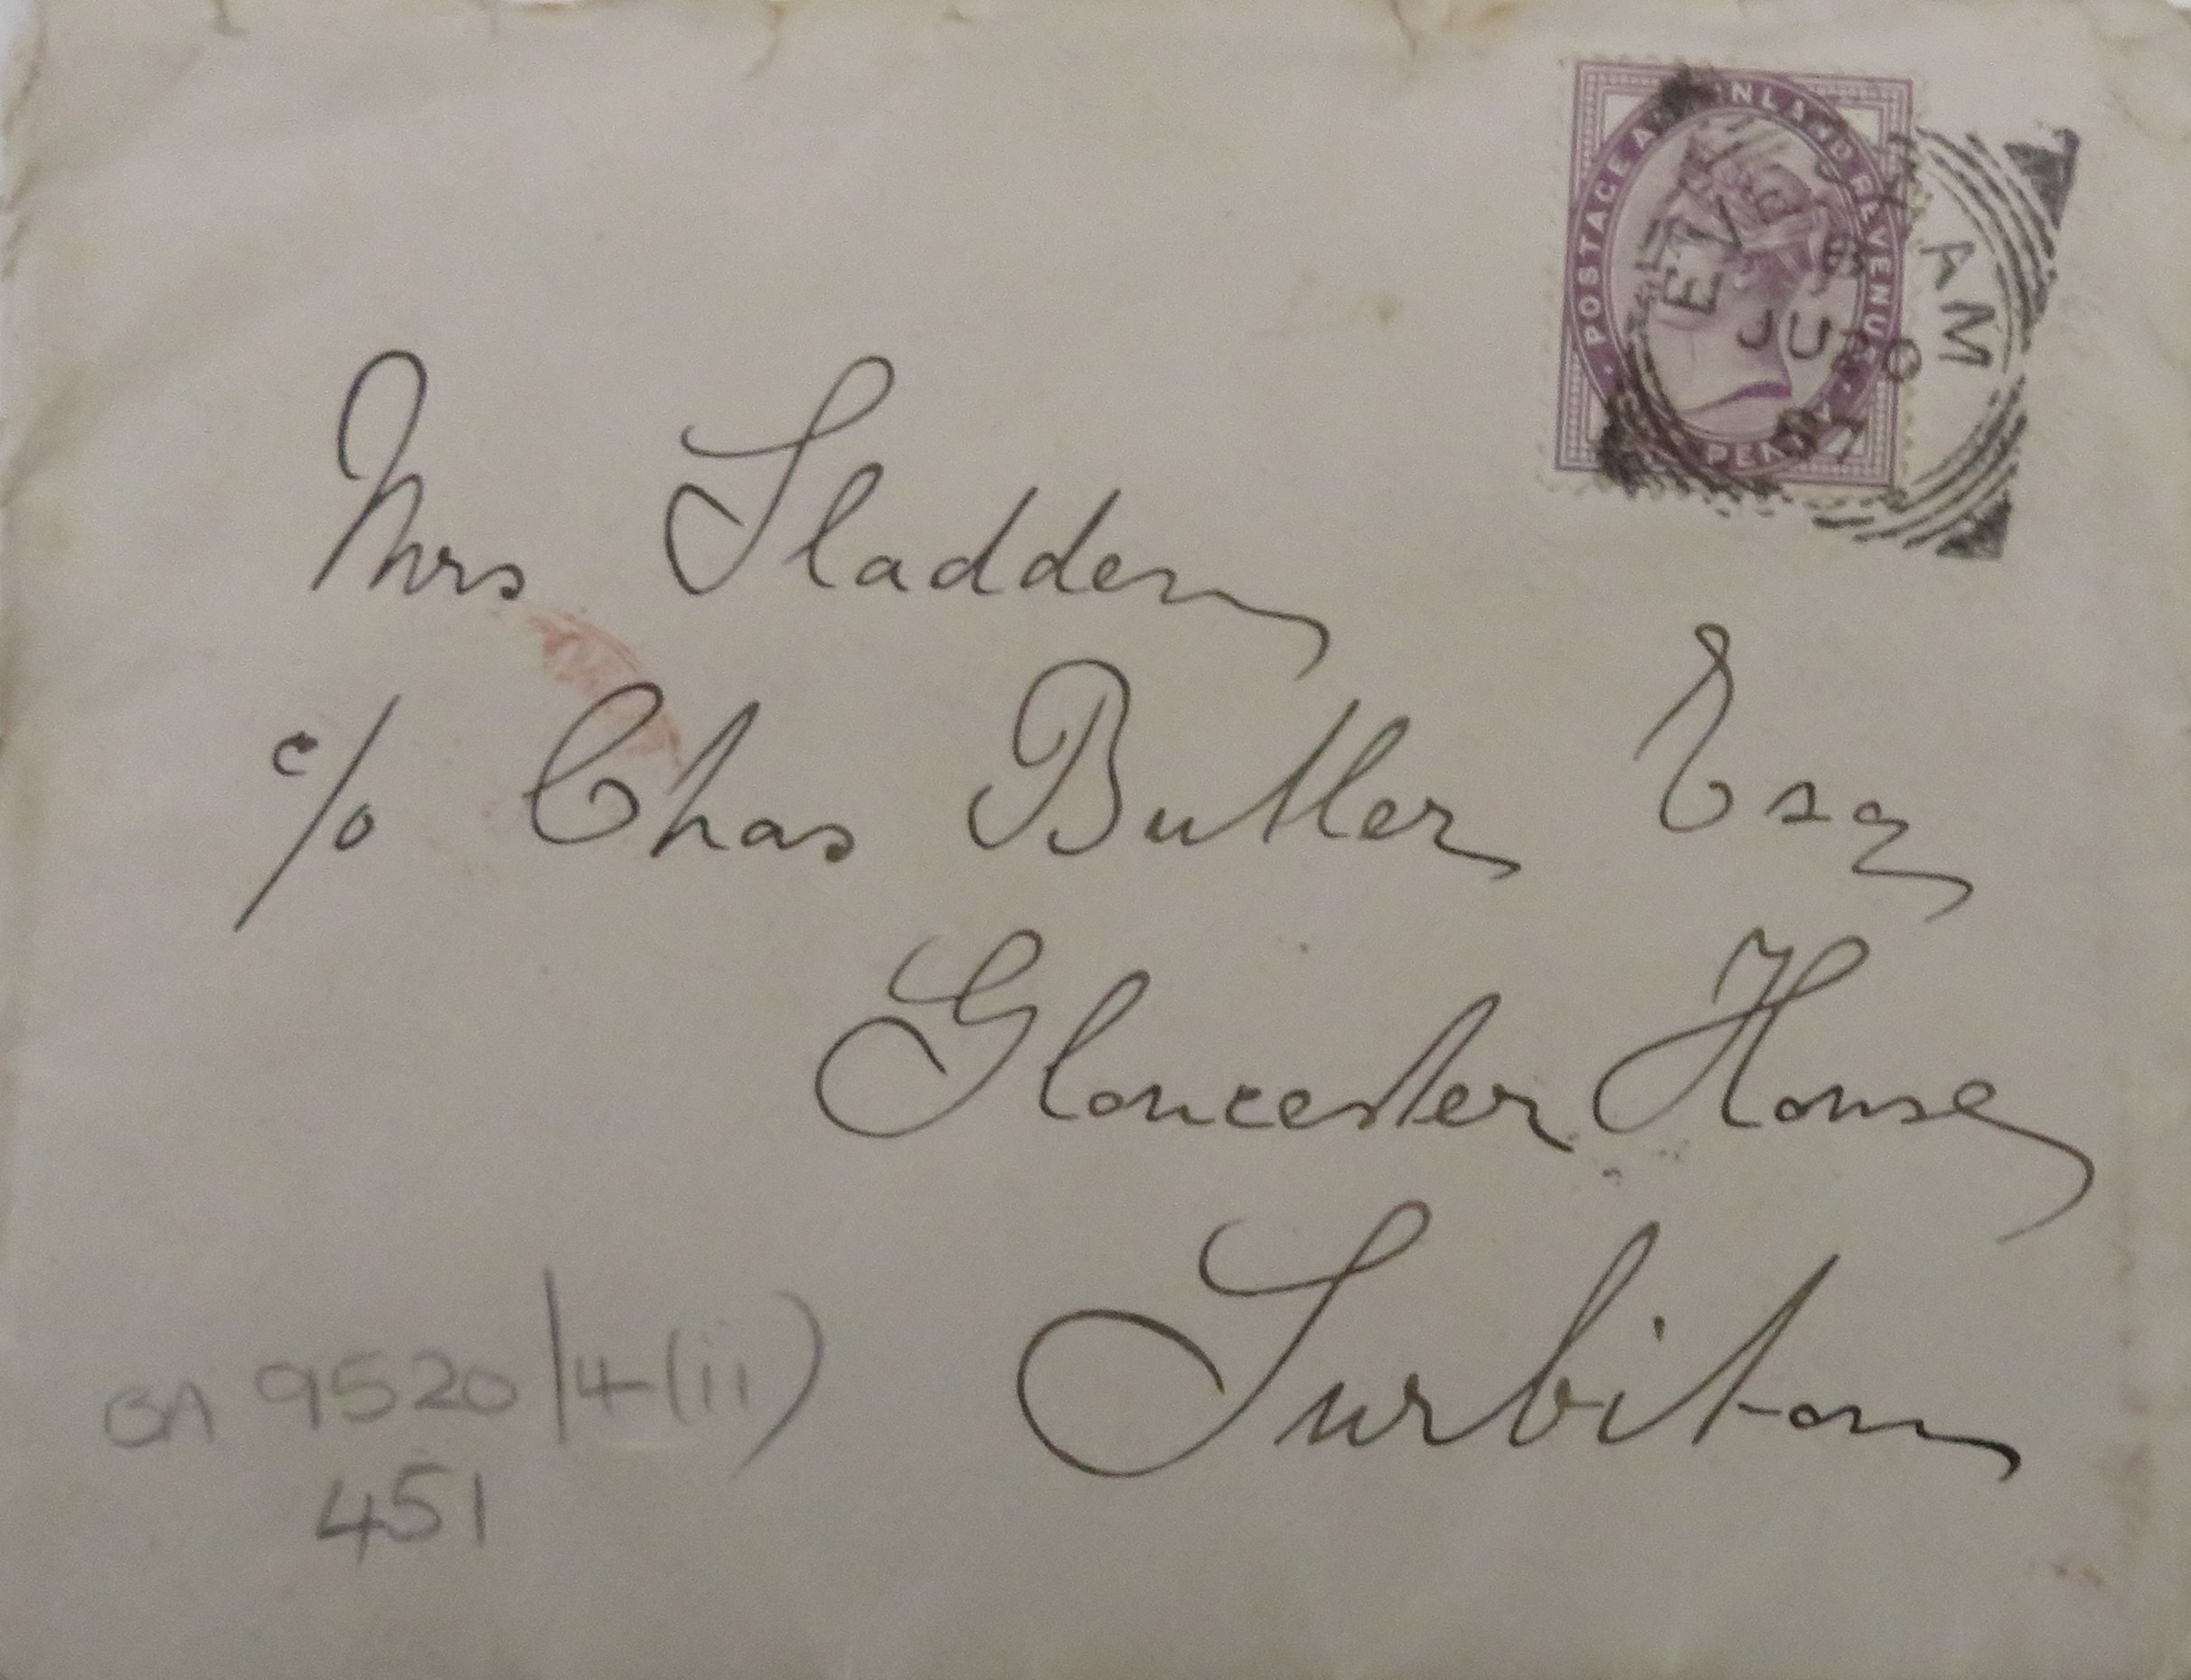 POSTAGE AND INLAND REVENUE
PEN
EVES AM
JU
97
Mrs Sladden
c/o Chas Butler Esq
Gloucester House
Surbiton
BA 9520/4(ii)
451